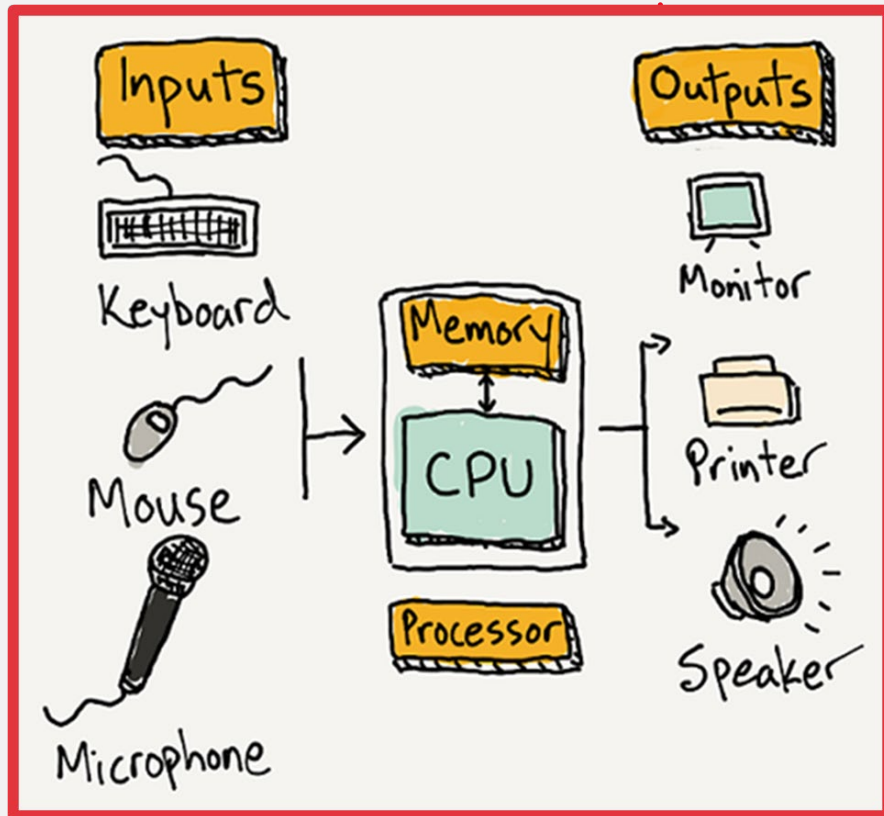 Inputs
Keyboard
Mouse
Microphone
Memory
CPU
Processor
Outputs
Monitor
Printer
Speaker